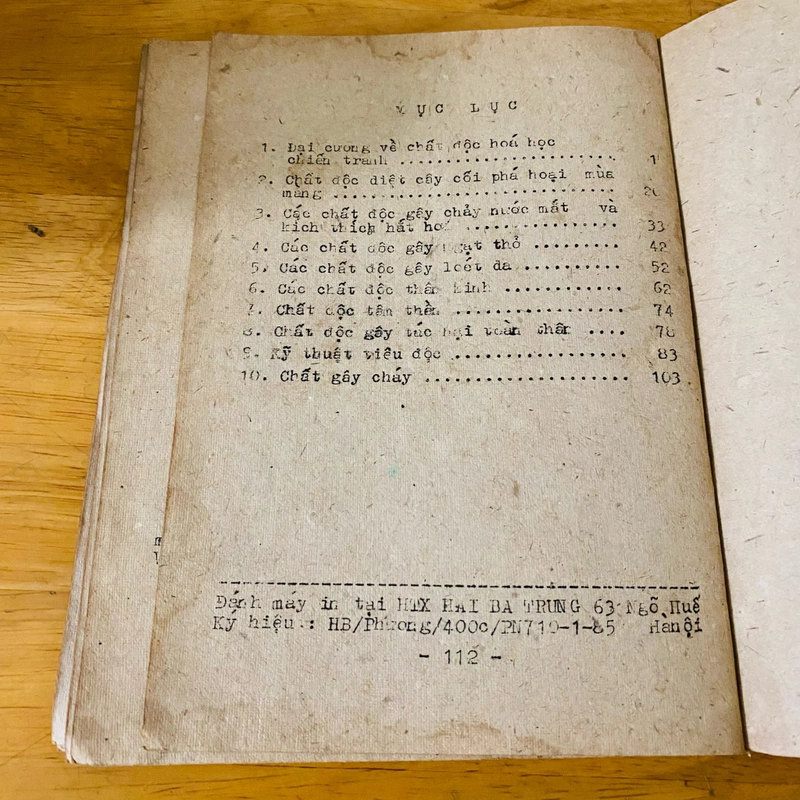 MỤC LỤC
1. Đại cương về chất độc hoá học
chiến tranh ........................ 1
2. Chất độc diệt cây cối phá hoại mùa
màng ............................... 20
3. Các chất độc gây chảy nước mắt và
kích thích hắt hơi ................ 33
4. Các chất độc gây ngạt thở ......... 42
5. Các chất độc gây loét da ........... 52
6. Các chất độc thần kinh ............ 62
7. Chất độc tâm thần .................. 74
8. Chất độc gây tác hại toàn thân .... 78
9. Kỹ thuật tiêu độc .................. 83
10. Chất gây cháy ..................... 103
Đánh máy in tại HTX HAI BÀ TRƯNG 63 Ngõ Huế
Ký hiệu : HB/Phương/400c/PN710-1-85 Hànội
- 112 -